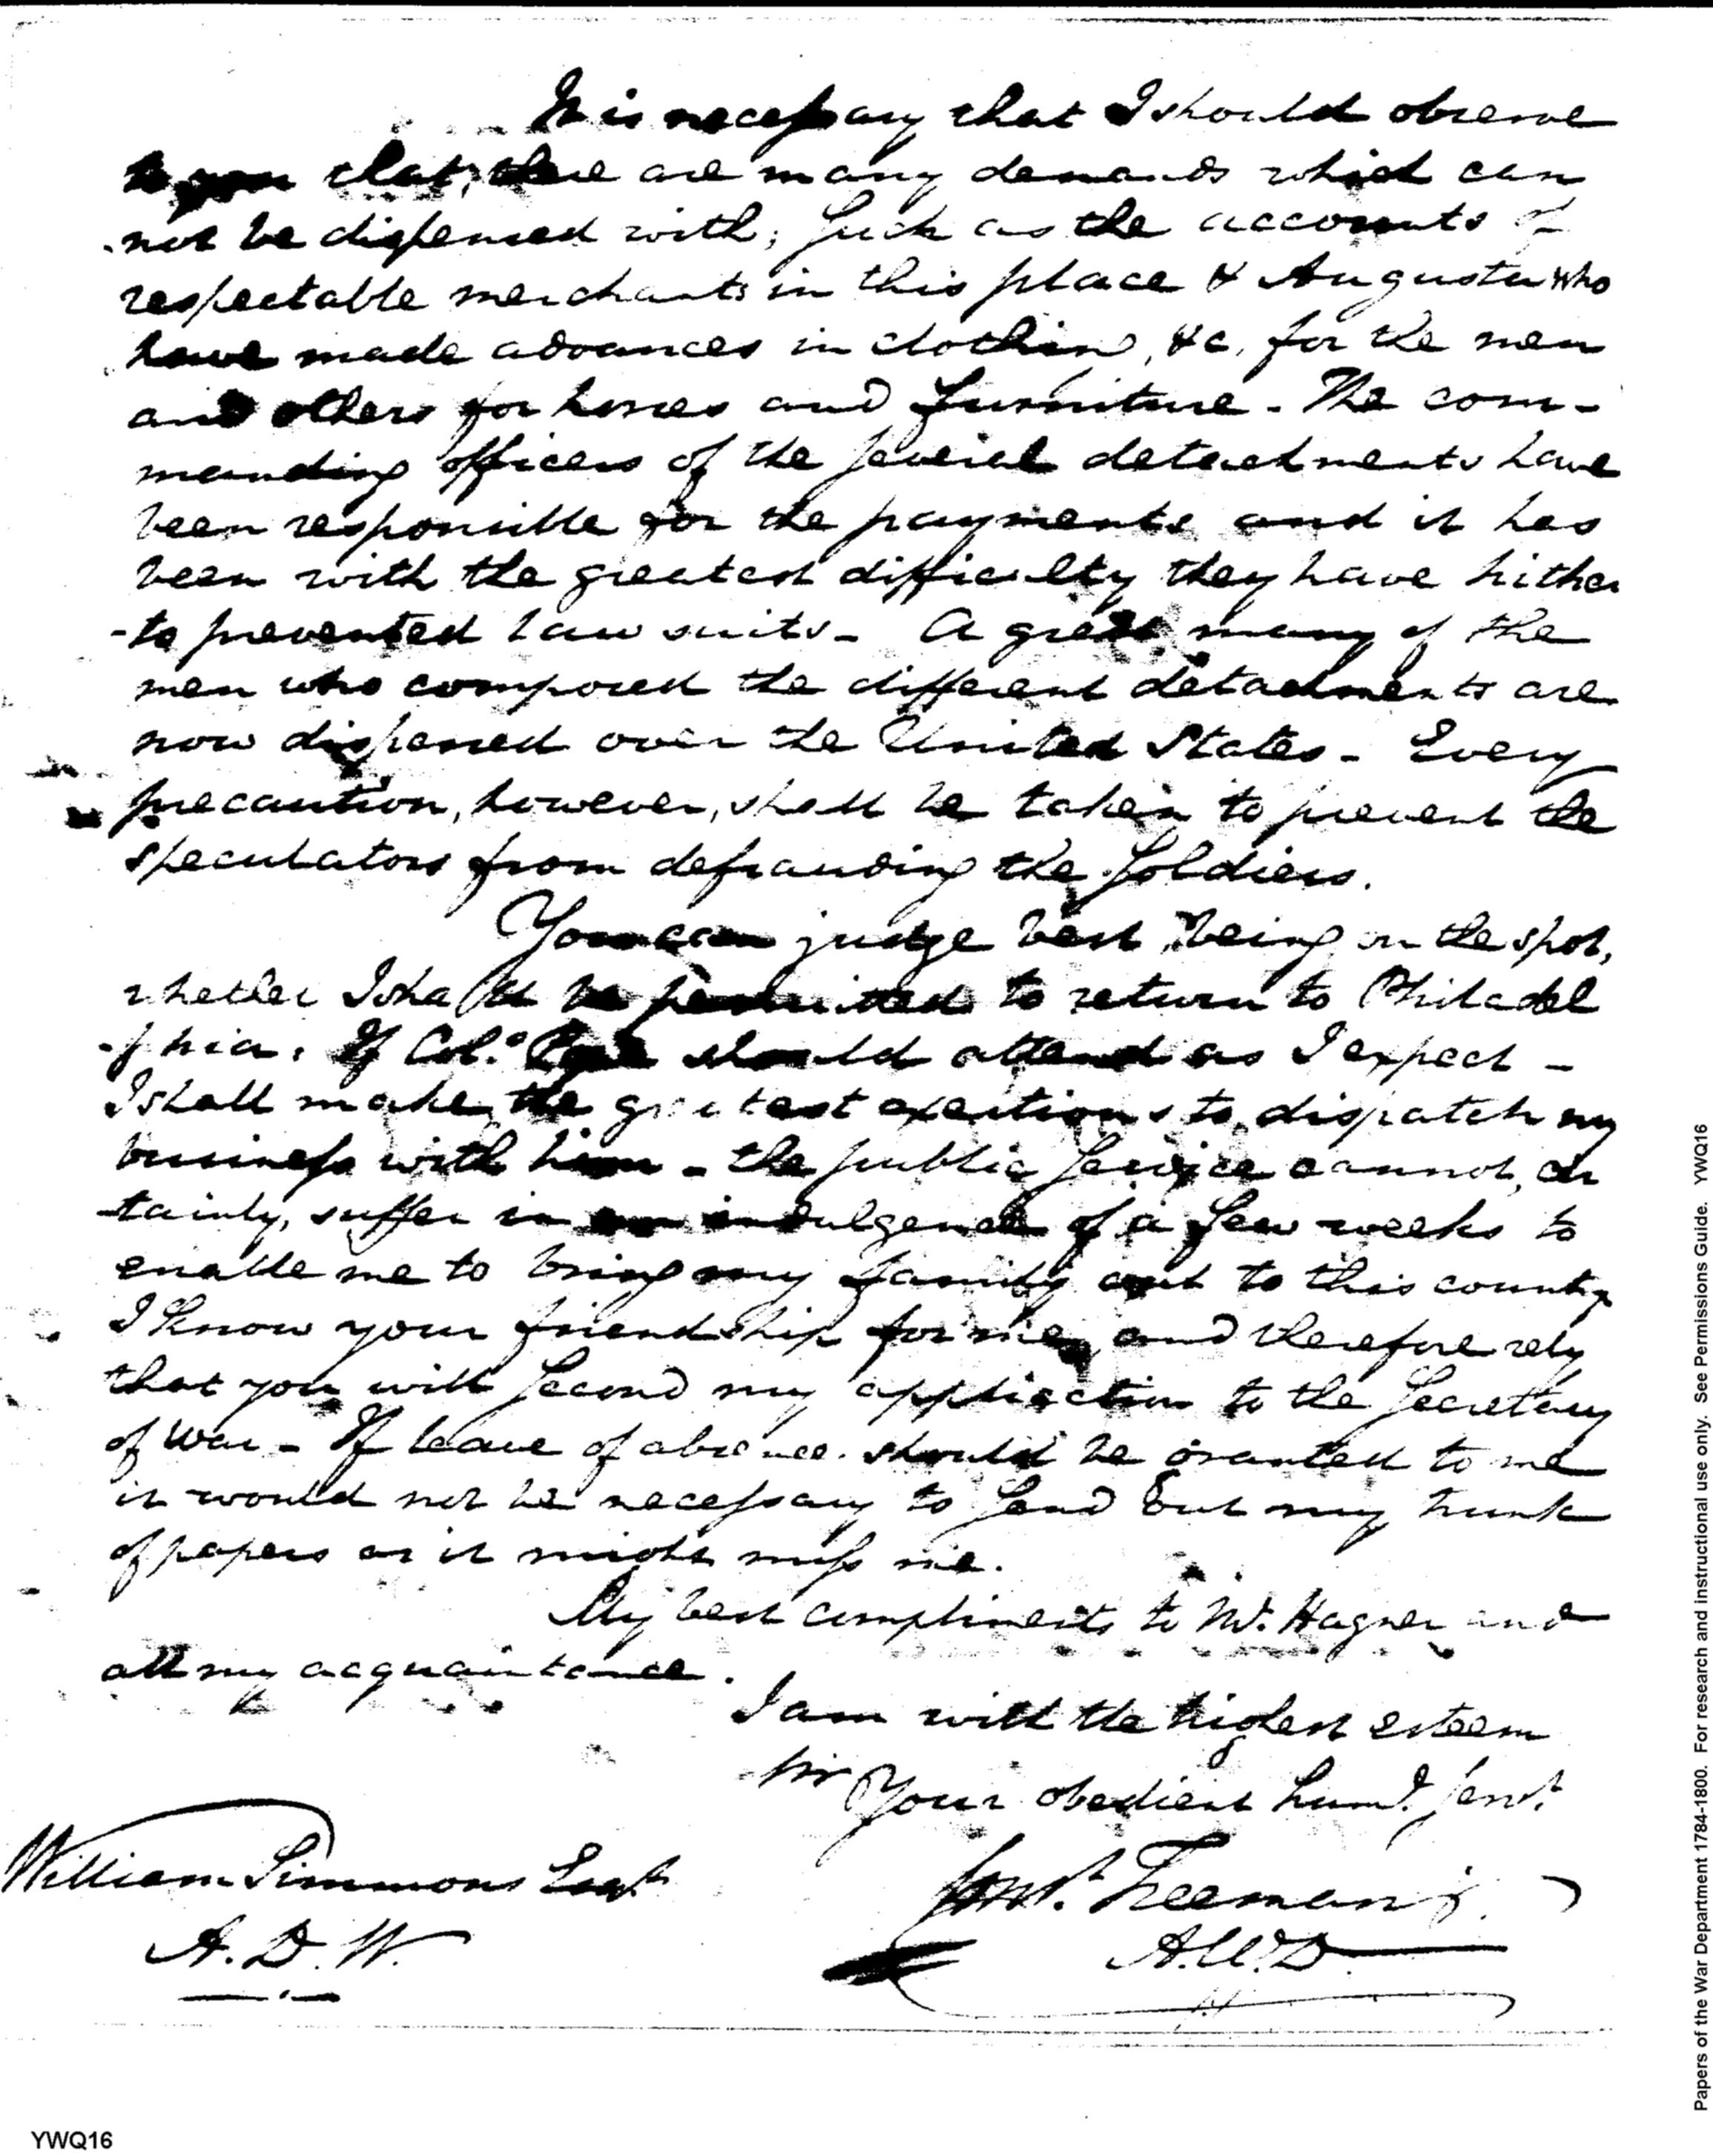 It is necessary that I should observe
to you that, there are many demands which can
not be dispensed with; such as the accounts of
respectable merchants in this place & Augusta who
have made advances in clothing, &c, for the men
and others for horses and furniture - The com-
manding officers of the several detachments have
been responsible for the payments and it has
been with the greatest difficulty they have hither
-to prevented law suits - A great many of the
men who composed the different detachments are
now dispersed over the United States - Every
precaution, however, shall be taken to prevent the
speculators from defrauding the Soldiers.
You can judge best, being on the spot,
whether I shall be permitted to return to Philadel
-phia. If Col.o should attend as I expect -
I shall make the greatest exertions to dispatch my
business with him - the public service cannot, cer
tainly, suffer in an indulgence of a few weeks to
enable me to bring my family out to this country
I know your friendship for me, and therefore rely
that you will second my application to the Secretary
of War - If leave of absence should be granted to me
it would not be necessary to send out my trunk
of papers as it might miss me.
My best compliments to Mr. Hagner and
all my acquaintance.
I am with the highest esteem
Sir
Your obedient humb. Servt.
William Simmons Esqr
Const. Freeman
A. D. W.
A.W.D
Papers of the War Department 1784-1800. For research and instructional use only. See Permissions Guide. YWQ16
YWQ16